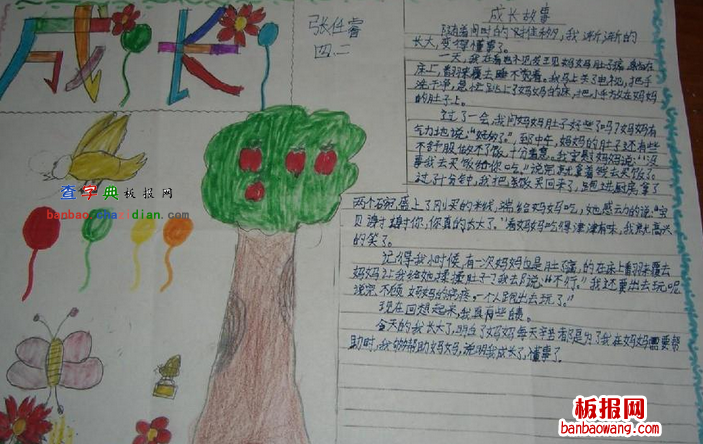 成长
张仕睿
四二
查字典板报网
banbao.chazidian.com
成长故事
随着时间的推移,我渐渐的
长大,变得懂事了。
一天,我在看电视发
床上翻来覆去睡不着。我马上关了电视,把手
洗干净,赶忙跑上了妈妈的床,把小手放在妈妈
的肚子上。
过了一会,我问妈妈肚子好些了吗?妈妈有
气力地说:“好多了。”到中午,妈妈的肚子还有些
不舒服,做不了饭,十分着急。我安慰妈妈说:“没
事我去买饭给你吃。”说完就拿着钱去买饭了。
过了十分钟,我把饭买回来了,跑进厨房拿了
两个碗,盛上了刚买的米线,端给妈妈吃,她感动的说:“宝
贝谢谢你,你真的长大了。”看妈妈吃得津津有味,我就高兴
的笑了。
记得我小时候,有一次妈妈也是肚子疼,的在床上翻来覆去
妈妈让我给她揉揉肚子,我去说:“不行。”我还要出去玩呢
说完不顾妈妈的疼痛,一个人跑出去玩了。”
现在回想起来,我真有些
今天的我长大了,明白了妈妈每天辛苦都是为了我在妈妈需要帮
助时,我能够帮助妈妈,说明我成长了,懂事了。
板报网
banbaowang.com